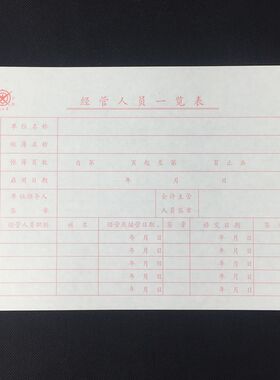 经管人员一览表
单位名称
帐簿名称
帐簿页数 自第 页起至第 页止共
启用日期 年 月 日
单位领导人 会计主管
签章 人员签章
经管人员职别 姓名 经管或接管日期 签章 移交日期 签
年 月 日 年 月 日
年 月 日 年 月 日
年 月 日 年 月 日
年 月 日 年 月 日
年 月 日 年 月 日